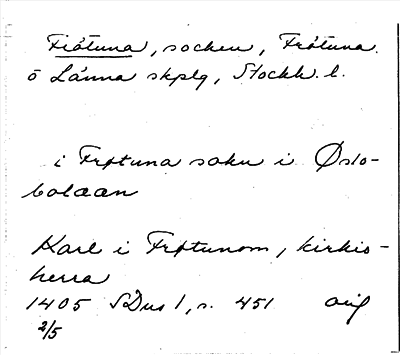 Frötuna, socken, Frötuna
o Länna skplg, Stockh. l.
i Frøtuna sokn i Øslo-
bolaan
Karl i Frøtunom, kirkio-
herra
1405 SDns 1, s. 451 orig
2/5